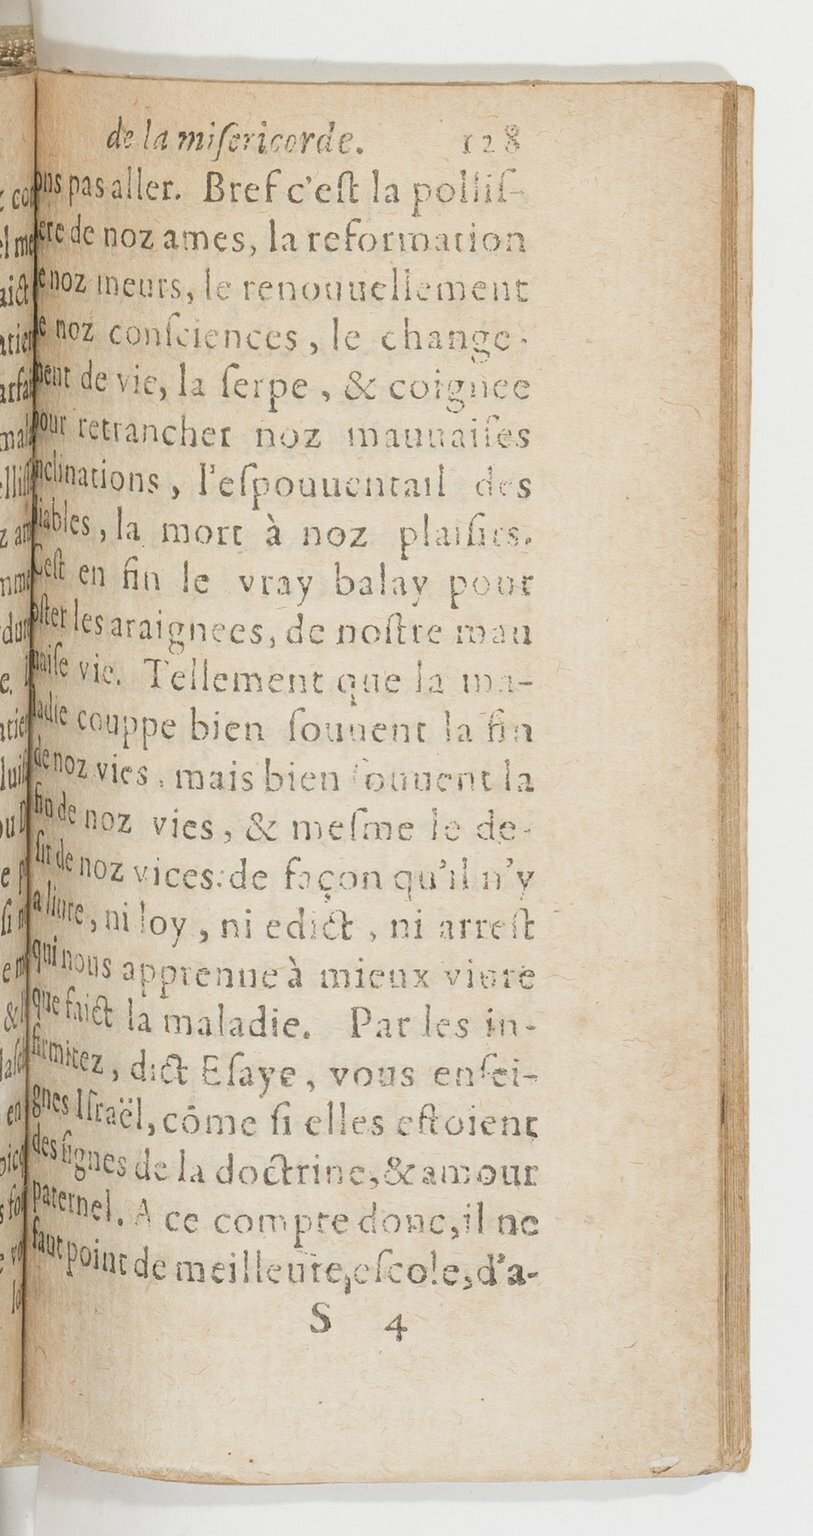 de la miſericorde. 128
ons pas aller. Bref c'eſt la polliſ-
ere de noz ames, la reformation
de noz meurs, le renouuellement
de noz conſciences, le change-
ment de vie, la ſerpe, & coignee
pour retrancher noz mauuaiſes
inclinations, l'eſpouuentail des
diables, la mort à noz plaiſirs.
C'eſt en fin le vray balay pour
oſter les araignees, de noſtre mau
uaiſe vie. Tellement que la ma-
ladie couppe bien ſouuent la fin
de noz vies, mais bien ſouuent la
fin de noz vies, & meſme le de-
ſir de noz vices: de façon qu'il n'y
a liure, ni loy, ni edict, ni arreſt
qui nous apprenne à mieux viure
que faict la maladie. Par les in-
firmitez, dict Eſaye, vous enſei-
gnes Iſraël, cõme ſi elles eſtoient
des ſignes de la doctrine, & amour
paternel. A ce compte donc, il ne
faut point de meilleure, eſcole, d'a-
S 4